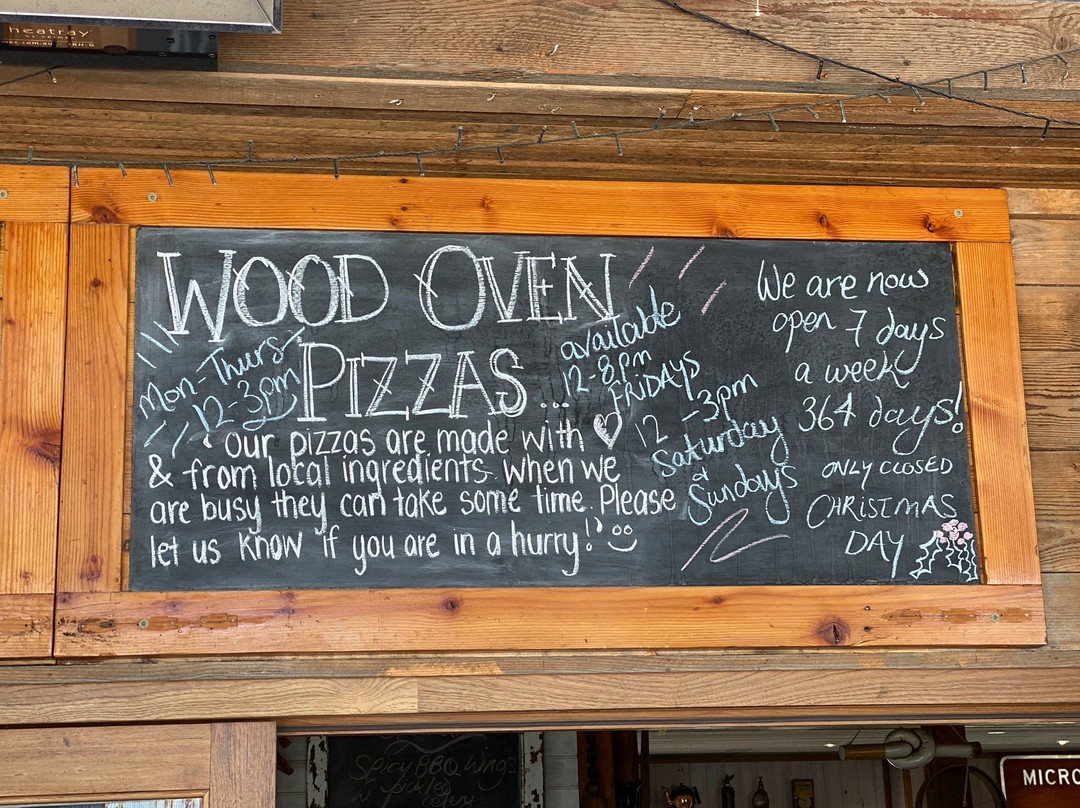 heatray
WOOD OVEN
PIZZAS...
Mon-Thurs
12-3pm
available
12-8pm
FRiDAYS
12-3pm
Saturday
&
Sundays
'our pizzas are made with ♡
& from local ingredients. when we
are busy they can take some time. Please
let us know if you are in a hurry!'
We are now
open 7 days
a week
364 days!
ONLY CLOSED
CHRISTMAS
DAY
Spicy BBQ Wings
MICRO